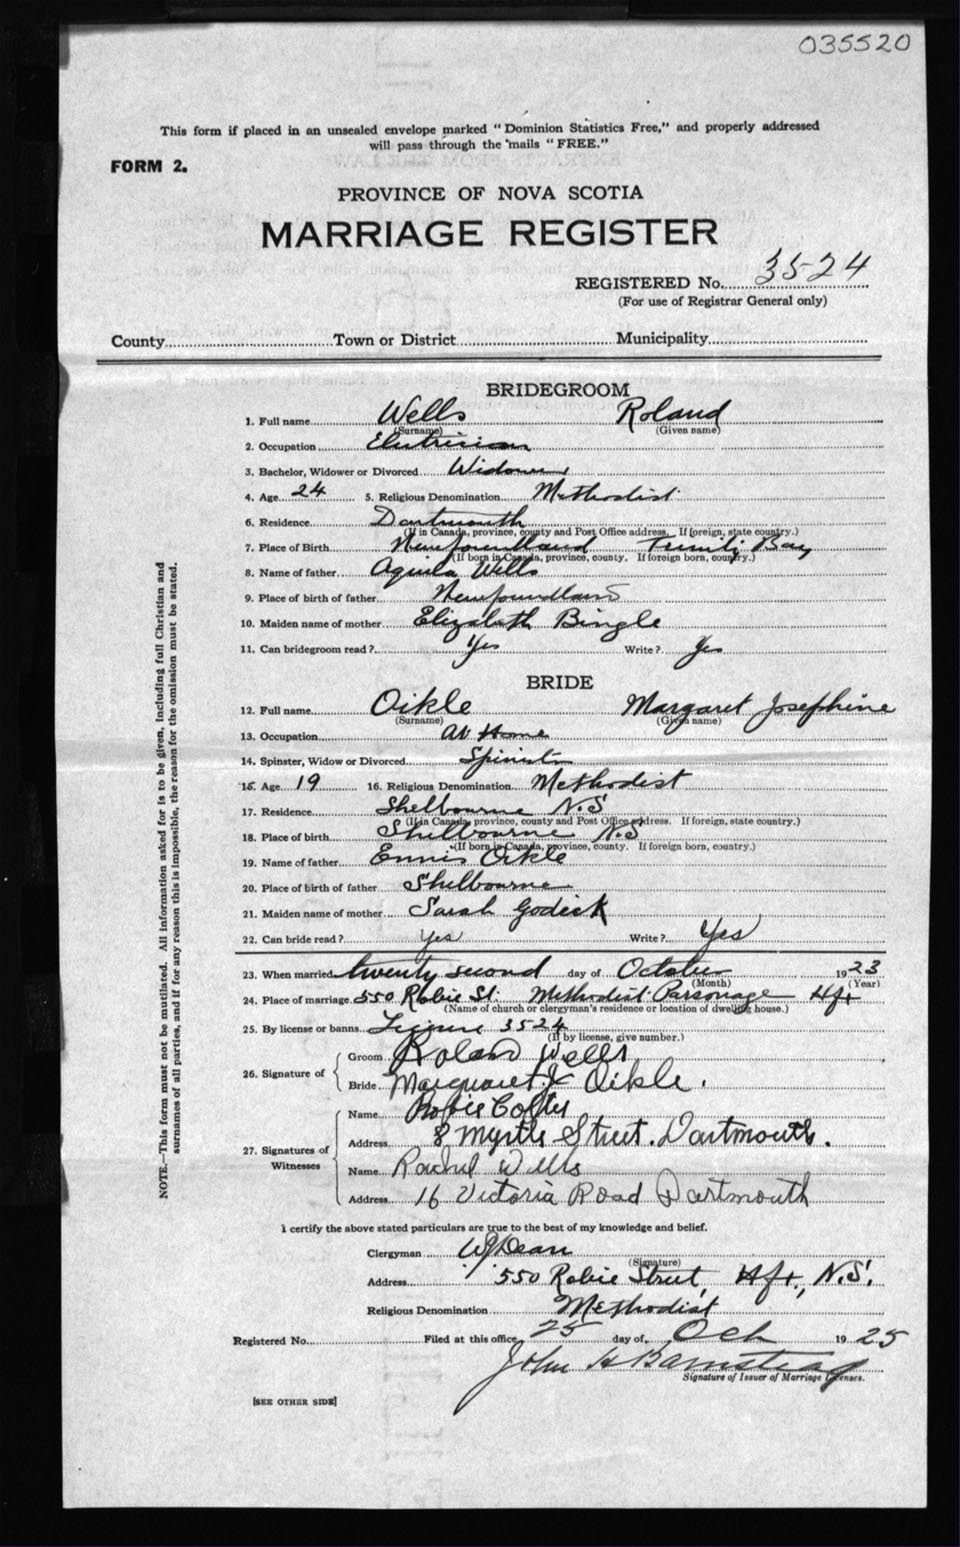 035520
This form if placed in an unsealed envelope marked "Dominion Statistics Free," and properly addressed
will pass through the mails "FREE."
FORM 2.
PROVINCE OF NOVA SCOTIA
MARRIAGE REGISTER
REGISTERED No. 3524
(For use of Registrar General only)
County Town or District Municipality
BRIDEGROOM
1. Full name Wells Roland
(Surname) (Given name)
2. Occupation Electrician
3. Bachelor, Widower or Divorced Widower
4. Age 24 5. Religious Denomination Methodist
6. Residence Dartmouth
(If in Canada, province, county and Post Office address. If foreign, state country.)
7. Place of Birth Newfoundland Trinity Bay
(If born in Canada, province, county. If foreign born, country.)
8. Name of father Aquila Wells
9. Place of birth of father Newfoundland
10. Maiden name of mother Elizabeth Bingle
11. Can bridegroom read? Yes Write? Yes
BRIDE
12. Full name Oikle Margaret Josephine
(Surname) (Given name)
13. Occupation At Home
14. Spinster, Widow or Divorced Spinster
15. Age 19 16. Religious Denomination Methodist
17. Residence Shelbourne N.S
(If in Canada, province, county and Post Office address. If foreign, state country.)
18. Place of birth Shelbourne N.S
(If born in Canada, province, county. If foreign born, country.)
19. Name of father Ennis Oikle
20. Place of birth of father Shelbourne
21. Maiden name of mother Sarah Godick
22. Can bride read? Yes Write? Yes
23. When married twenty second day of October 1923
(Month) (Year)
24. Place of marriage 550 Robie St. Methodist Parsonage Hfx
(Name of church or clergyman's residence or location of dwelling house.)
25. By license or banns License 3524
(If by license, give number.)
26. Signature of
Groom Roland Wells
Bride Marguaret J Oikle.
27. Signatures of Witnesses
Name
Address 8 Myrtle Street. Dartmouth.
Name Rachel Wells
Address 16 Victoria Road Dartmouth
I certify the above stated particulars are true to the best of my knowledge and belief.
Clergyman W J Dean
(Signature)
Address 550 Robie Street, Hfx, N.S.
Religious Denomination Methodist
Registered No. Filed at this office 25 day of Oct 1925
John H Barnstead
Signature of Issuer of Marriage Licenses.
[SEE OTHER SIDE]
NOTE.—This form must not be mutilated. All information asked for is to be given, including full Christian and
surnames of all parties, and if for any reason this is impossible, the reason for the omission must be stated.